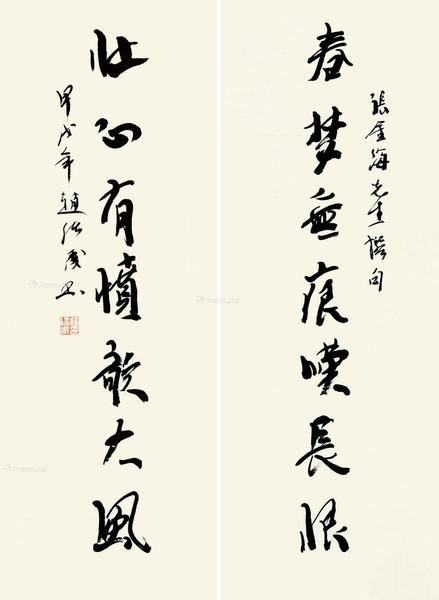 張金海先生撰句
春梦無痕嘆長恨
壮心有憤歌大風
甲戌年趙书